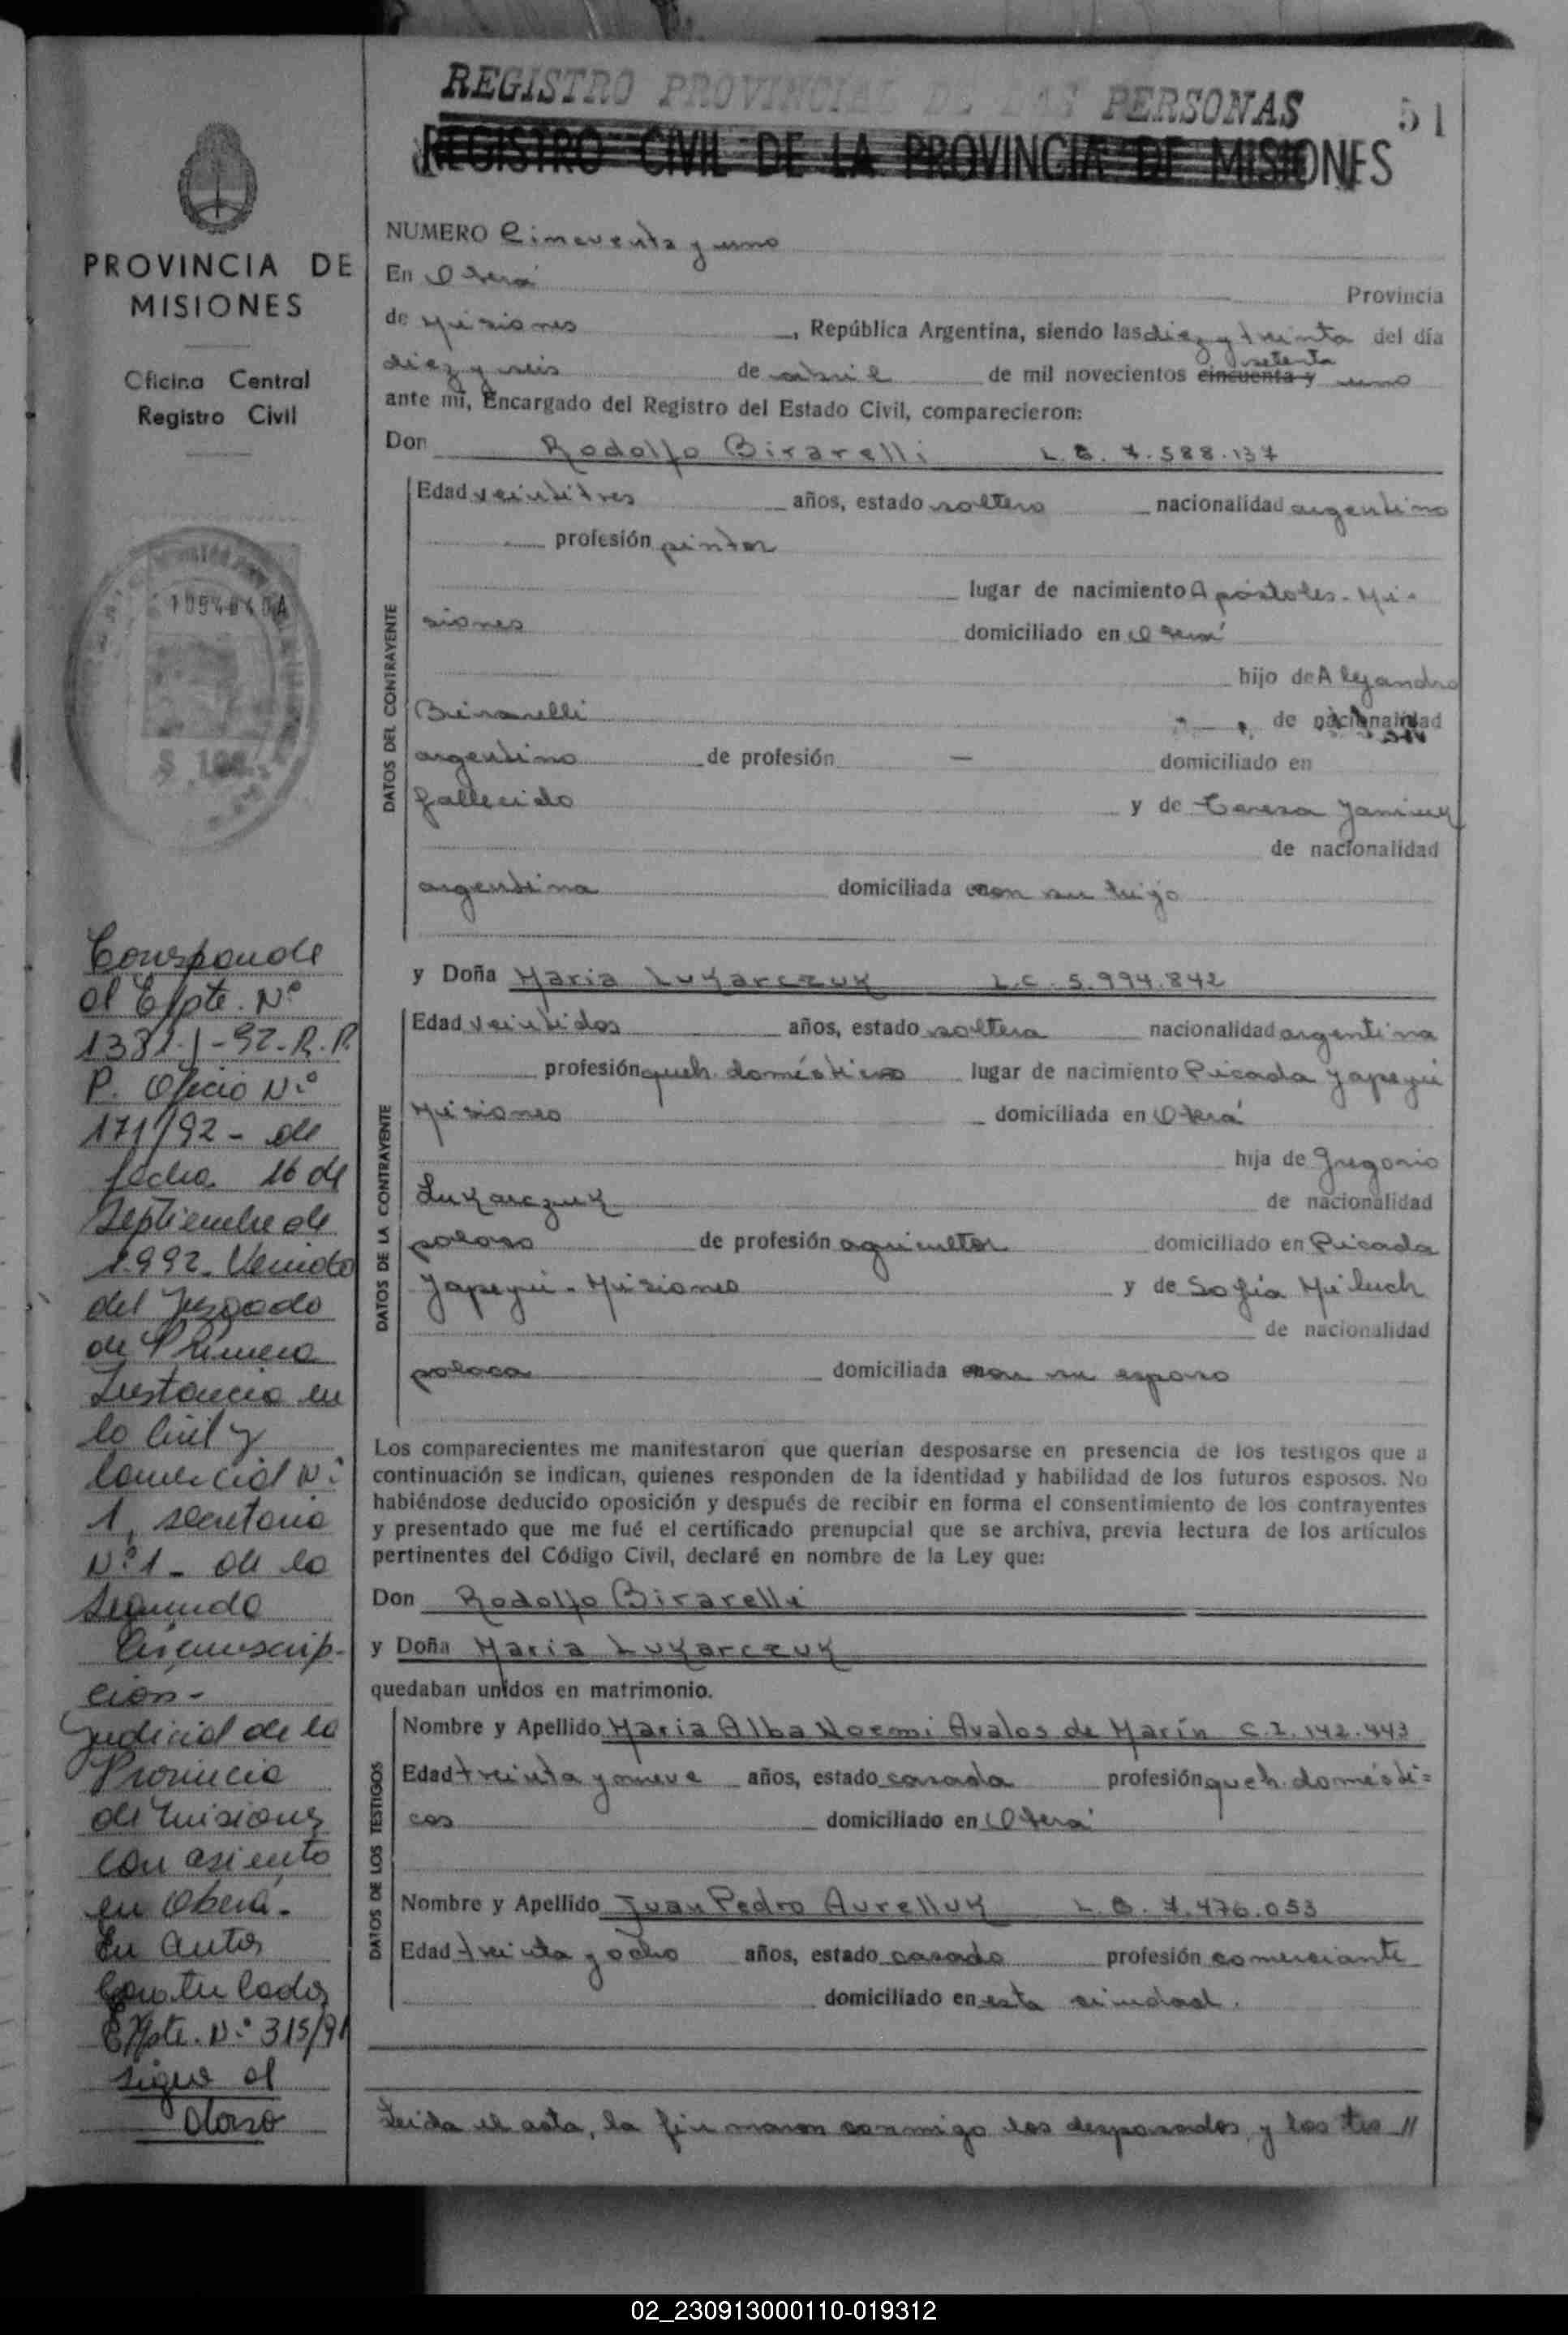 REGISTRO PROVINCIAL DE LAS PERSONAS
51
REGISTRO CIVIL DE LA PROVINCIA DE MISIONES
PROVINCIA DE
MISIONES
Oficina Central
Registro Civil
NUMERO Cincuenta y uno
En Oberá Provincia
de Misiones, República Argentina, siendo las diez y treinta del día
setenta
diez y seis de abril de mil novecientos cincuenta y uno
ante mí, Encargado del Registro del Estado Civil, comparecieron:
Don Rodolfo Birarelli L.E. 7.588.137
DATOS DEL CONTRAYENTE
Edad veintitres años, estado soltero nacionalidad argentino
profesión pintor
lugar de nacimiento Apóstoles - Mi-
siones domiciliado en Oberá
hijo de Alejandro
Birarelli de nacionalidad
argentino de profesión — domiciliado en
fallecido y de Teresa Janiuk
de nacionalidad
argentina domiciliada con su hijo
y Doña Maria Lukarczuk L.C. 5.994.842
DATOS DE LA CONTRAYENTE
Edad veintidos años, estado soltera nacionalidad argentina
profesión queh. domésticos lugar de nacimiento Picada Yapeyú
Misiones domiciliada en Oberá
hija de Gregorio
Lukarczuk de nacionalidad
polaco de profesión agricultor domiciliado en Picada
Yapeyú - Misiones y de Sofia Miluch
de nacionalidad
polaca domiciliada con su esposo
Los comparecientes me manifestaron que querían desposarse en presencia de los testigos que a
continuación se indican, quienes responden de la identidad y habilidad de los futuros esposos. No
habiéndose deducido oposición y después de recibir en forma el consentimiento de los contrayentes
y presentado que me fué el certificado prenupcial que se archiva, previa lectura de los artículos
pertinentes del Código Civil, declaré en nombre de la Ley que:
Don Rodolfo Birarelli
y Doña Maria Lukarczuk
quedaban unidos en matrimonio.
DATOS DE LOS TESTIGOS
Nombre y Apellido Maria Alba Noemi Avalos de Marín C.I. 142.443
Edad treinta y nueve años, estado casada profesión queh. domésti=
cos domiciliado en Oberá
Nombre y Apellido Juan Pedro Aurelluk L.E. 7.476.053
Edad treinta y ocho años, estado casado profesión comerciante
domiciliado en esta ciudad.
Leida el acta, la firmaron conmigo los desposados y los tes //
Corresponde
al Expte. Nº
1381-J-92-R.P.
P. Oficio Nº
171/92 - de
fecha 16 de
Septiembre de
1.992. Venido
del Juzgado
de Primera
Instancia en
lo Civil y
Comercial Nº
1, secretaria
Nº 1 - de la
Segunda
Circunscrip-
cion -
Judicial de la
Provincia
de Misiones
con asiento
en Oberá.
En autos
Caratulados
Expte. Nº 315/91
sigue al
dorso
02_230913000110-019312